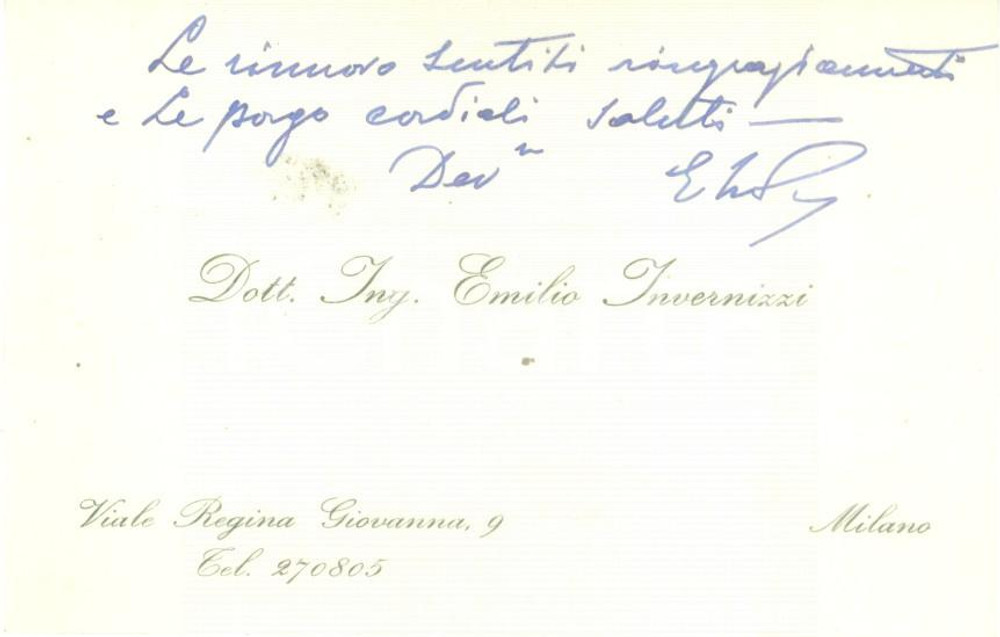 Le rinnovo sentiti ringraziamenti
e Le porgo cordiali saluti —
Dev
Dott. Ing. Emilio Invernizzi
Viale Regina Giovanna, 9 Milano
Tel. 270805